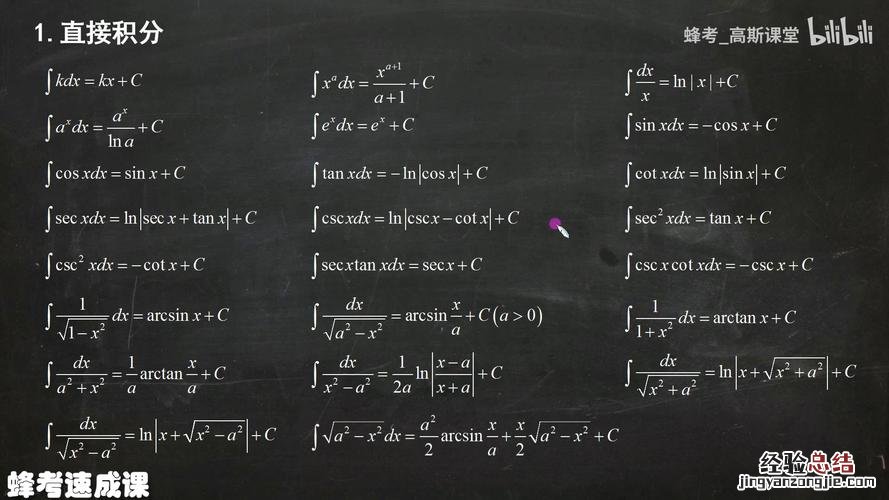 1. 直接积分
蜂考_高斯课堂 bilibili
∫kdx = kx + C ∫x^a dx = x^(a+1)/(a+1) + C ∫dx/x = ln|x| + C
∫a^x dx = a^x/ln a + C ∫e^x dx = e^x + C ∫sin xdx = −cos x + C
∫cos xdx = sin x + C ∫tan xdx = −ln|cos x| + C ∫cot xdx = ln|sin x| + C
∫sec xdx = ln|sec x + tan x| + C ∫csc xdx = ln|csc x − cot x| + C ∫sec² xdx = tan x + C
∫csc² xdx = −cot x + C ∫sec x tan xdx = sec x + C ∫csc x cot xdx = −csc x + C
∫1/√(1−x²) dx = arcsin x + C ∫dx/√(a²−x²) = arcsin x/a + C (a > 0) ∫1/(1+x²) dx = arctan x + C
∫dx/(a²+x²) = 1/a arctan x/a + C ∫dx/(x²−a²) = 1/2a ln|(x−a)/(x+a)| + C ∫dx/√(x²+a²) = ln|x + √(x²+a²)| + C
∫dx/√(x²−a²) = ln|x + √(x²−a²)| + C ∫√(a²−x²) dx = a²/2 arcsin x/a + x/2 √(a²−x²) + C
蜂考速成课
经验总结
jingyanzongjie.com